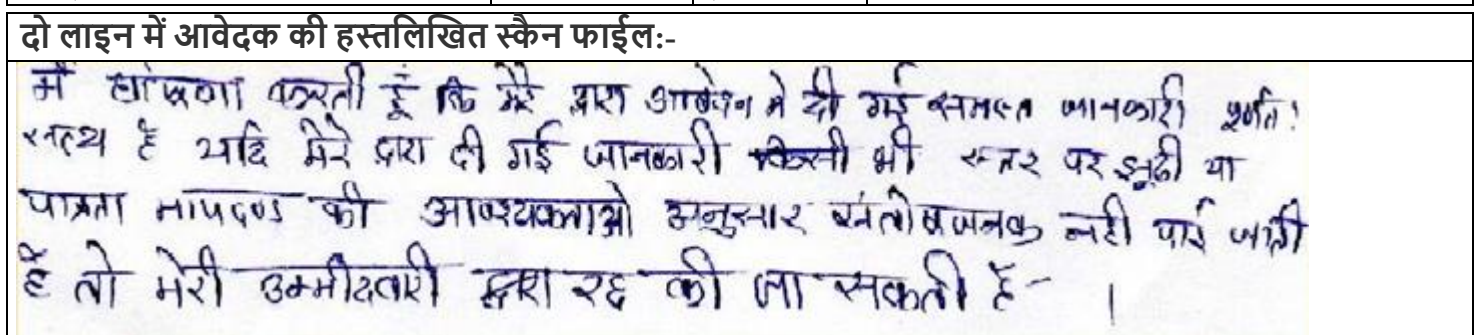 दो लाइन में आवेदक की हस्तलिखित स्कैन फाईल:-
मैं घोषणा करती हूं कि मेरे द्वारा आवेदन मे दी गई समस्त जानकारी पूर्णत:
सत्य है यदि मेरे द्वारा दी गई जानकारी किसी भी स्तर पर झूठी या
पात्रता मापदण्ड की आवश्यकताओ अनुसार संतोषजनक नही पाई जाती
है तो मेरी उम्मीदवारी द्वारा रद्द की जा सकती है- ।